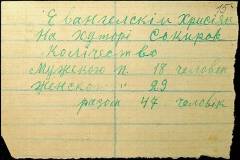 15
Евангелскіи Христіян
На хуторі Сокиров
Колічество
Мужеского п. 18 человек
женского " 29
разом 47 человік